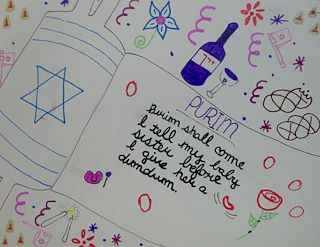 יין
PURIM
Purim shall come
I tell my baby
sister before
I give her a
dumdum.